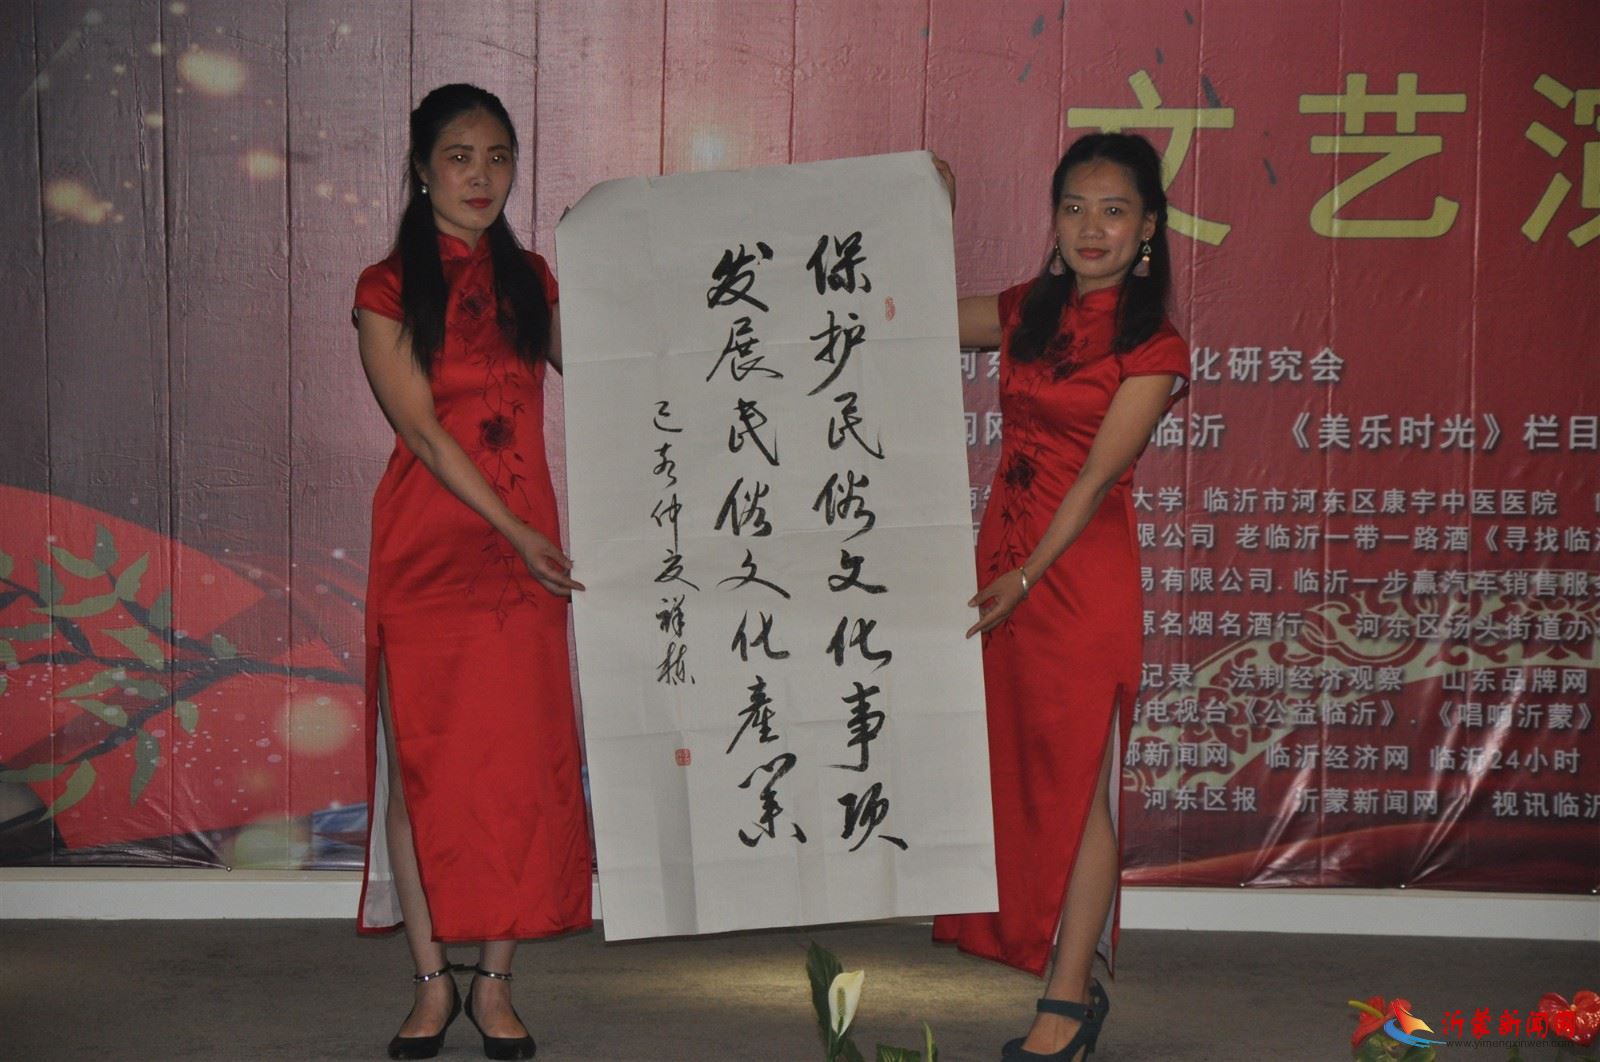 文艺演
河东
化研究会
闻网
临沂
《美乐时光》栏目
大学 临沂市河东区康宇中医医院
限公司 老临沂一带一路酒《寻找临沂
易有限公司.临沂一步赢汽车销售服务
原名烟名酒行 河东区汤头街道办
记录 法制经济观察 山东品牌网
播电视台《公益临沂》.《唱响沂蒙》
部新闻网 临沂经济网 临沂24小时
河东区报 沂蒙新闻网 视讯临沂
保护民俗文化事项
发展民俗文化產業
己亥仲夏祥栋
沂蒙新闻网
www.yimengxinwen.com